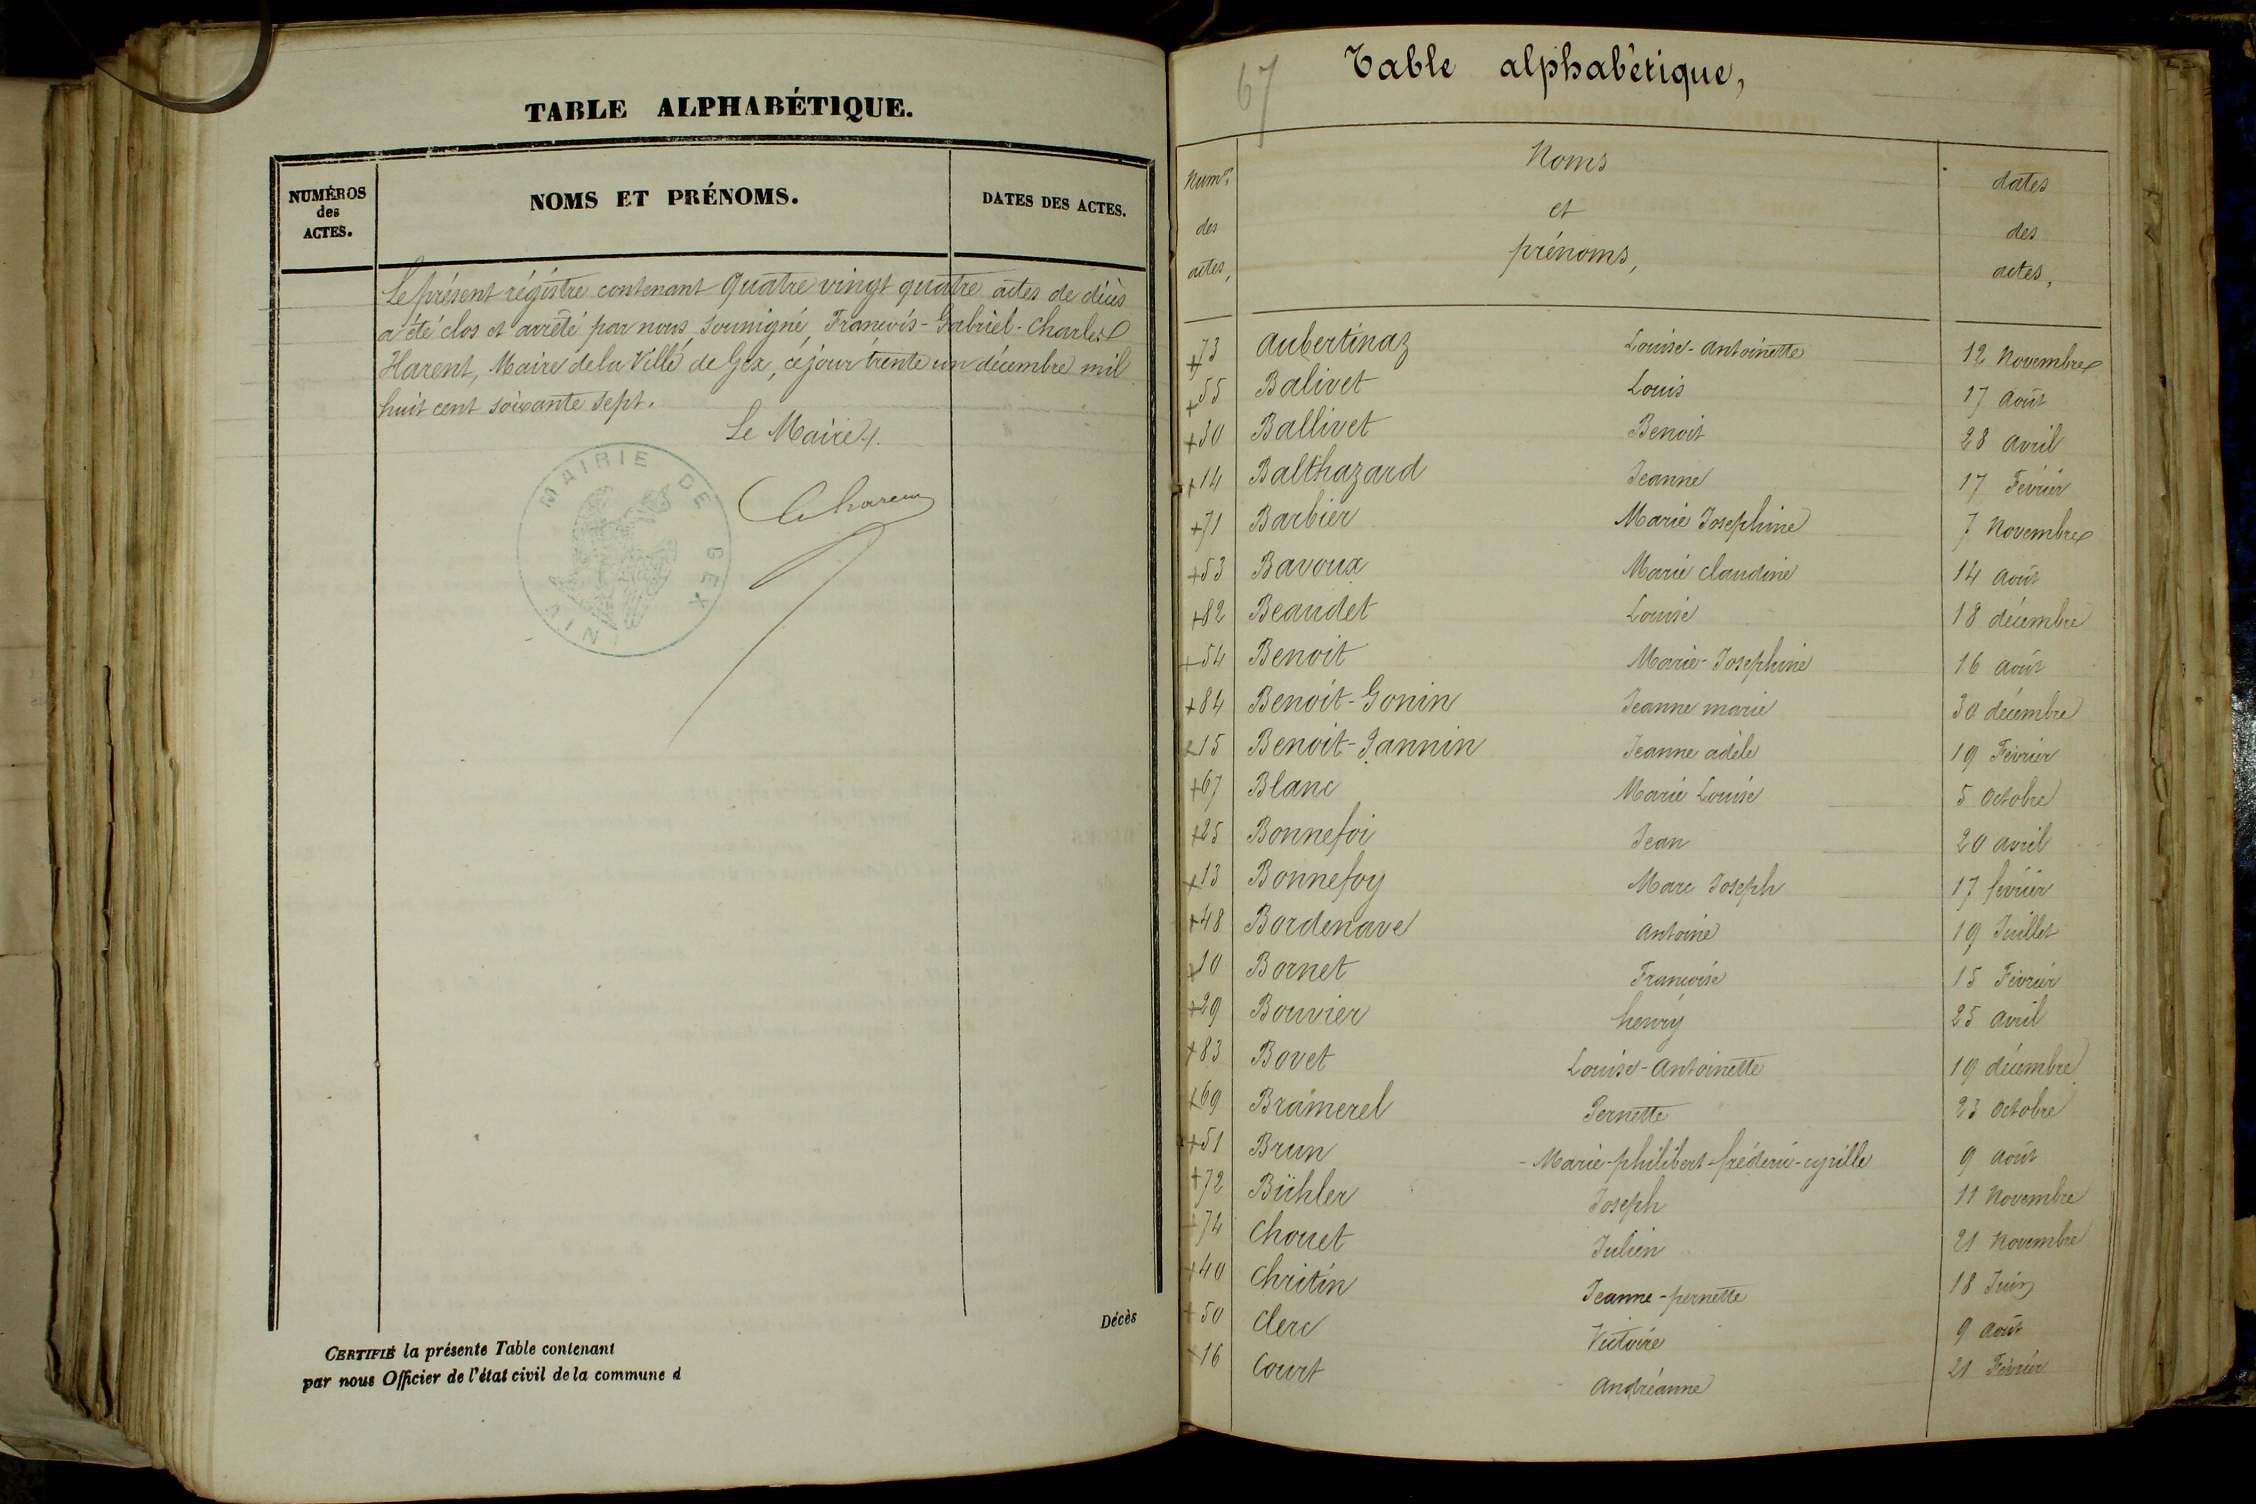 TABLE ALPHABÉTIQUE.
NUMÉROS des ACTES.
NOMS ET PRÉNOMS.
DATES DES ACTES.
Le présent régistre contenant Quatre vingt quatre actes de décès
a été clos et arrêté par nous soussigné, François-Gabriel-Charles
Harent, Maire de la Ville de Gex, ce jour trente un décembre mil
huit cent soixante sept.
Le Maire,
MAIRIE DE GEX
AIN
Décès
CERTIFIÉ la présente Table contenant
par nous Officier de l'état civil de la commune d
67
Table alphabétique,
Num.os des actes,
Noms et prénoms,
dates des actes,
+73 Aubertinaz Louise-Antoinette 12 Novembre
+55 Balivet Louis 17 Août
+30 Ballivet Benoit 28 Avril
+14 Balthazard Jeanne 17 Février
+71 Barbier Marie Josephine 7 Novembre
+53 Bavoux Marie Claudine 14 Août
+82 Beaudet Louise 18 décembre
+54 Benoit Marie-Josephine 16 Août
+84 Benoit-Gonin Jeanne marie 30 décembre
+15 Benoit-Jannin Jeanne adèle 19 Février
+67 Blanc Marie Louise 5 Octobre
+25 Bonnefoi Jean 20 avril
+13 Bonnefoy Marc Joseph 17 février
+48 Bordenave Antoine 19 Juillet
+10 Bornet Françoise 15 Février
+29 Bouvier henry 25 Avril
+83 Bovet Louise-Antoinette 19 décembre
+69 Bramerel Pernette 23 Octobre
+51 Brun - Marie-philibert-fréderic-cyrille 9 Août
+72 Bühler Joseph 11 Novembre
+74 Chouet Julien 21 Novembre
+40 Chritin Jeanne-pernette 18 Juin
+50 Clerc Victoire 9 Août
+16 Court Andréanne 21 Février